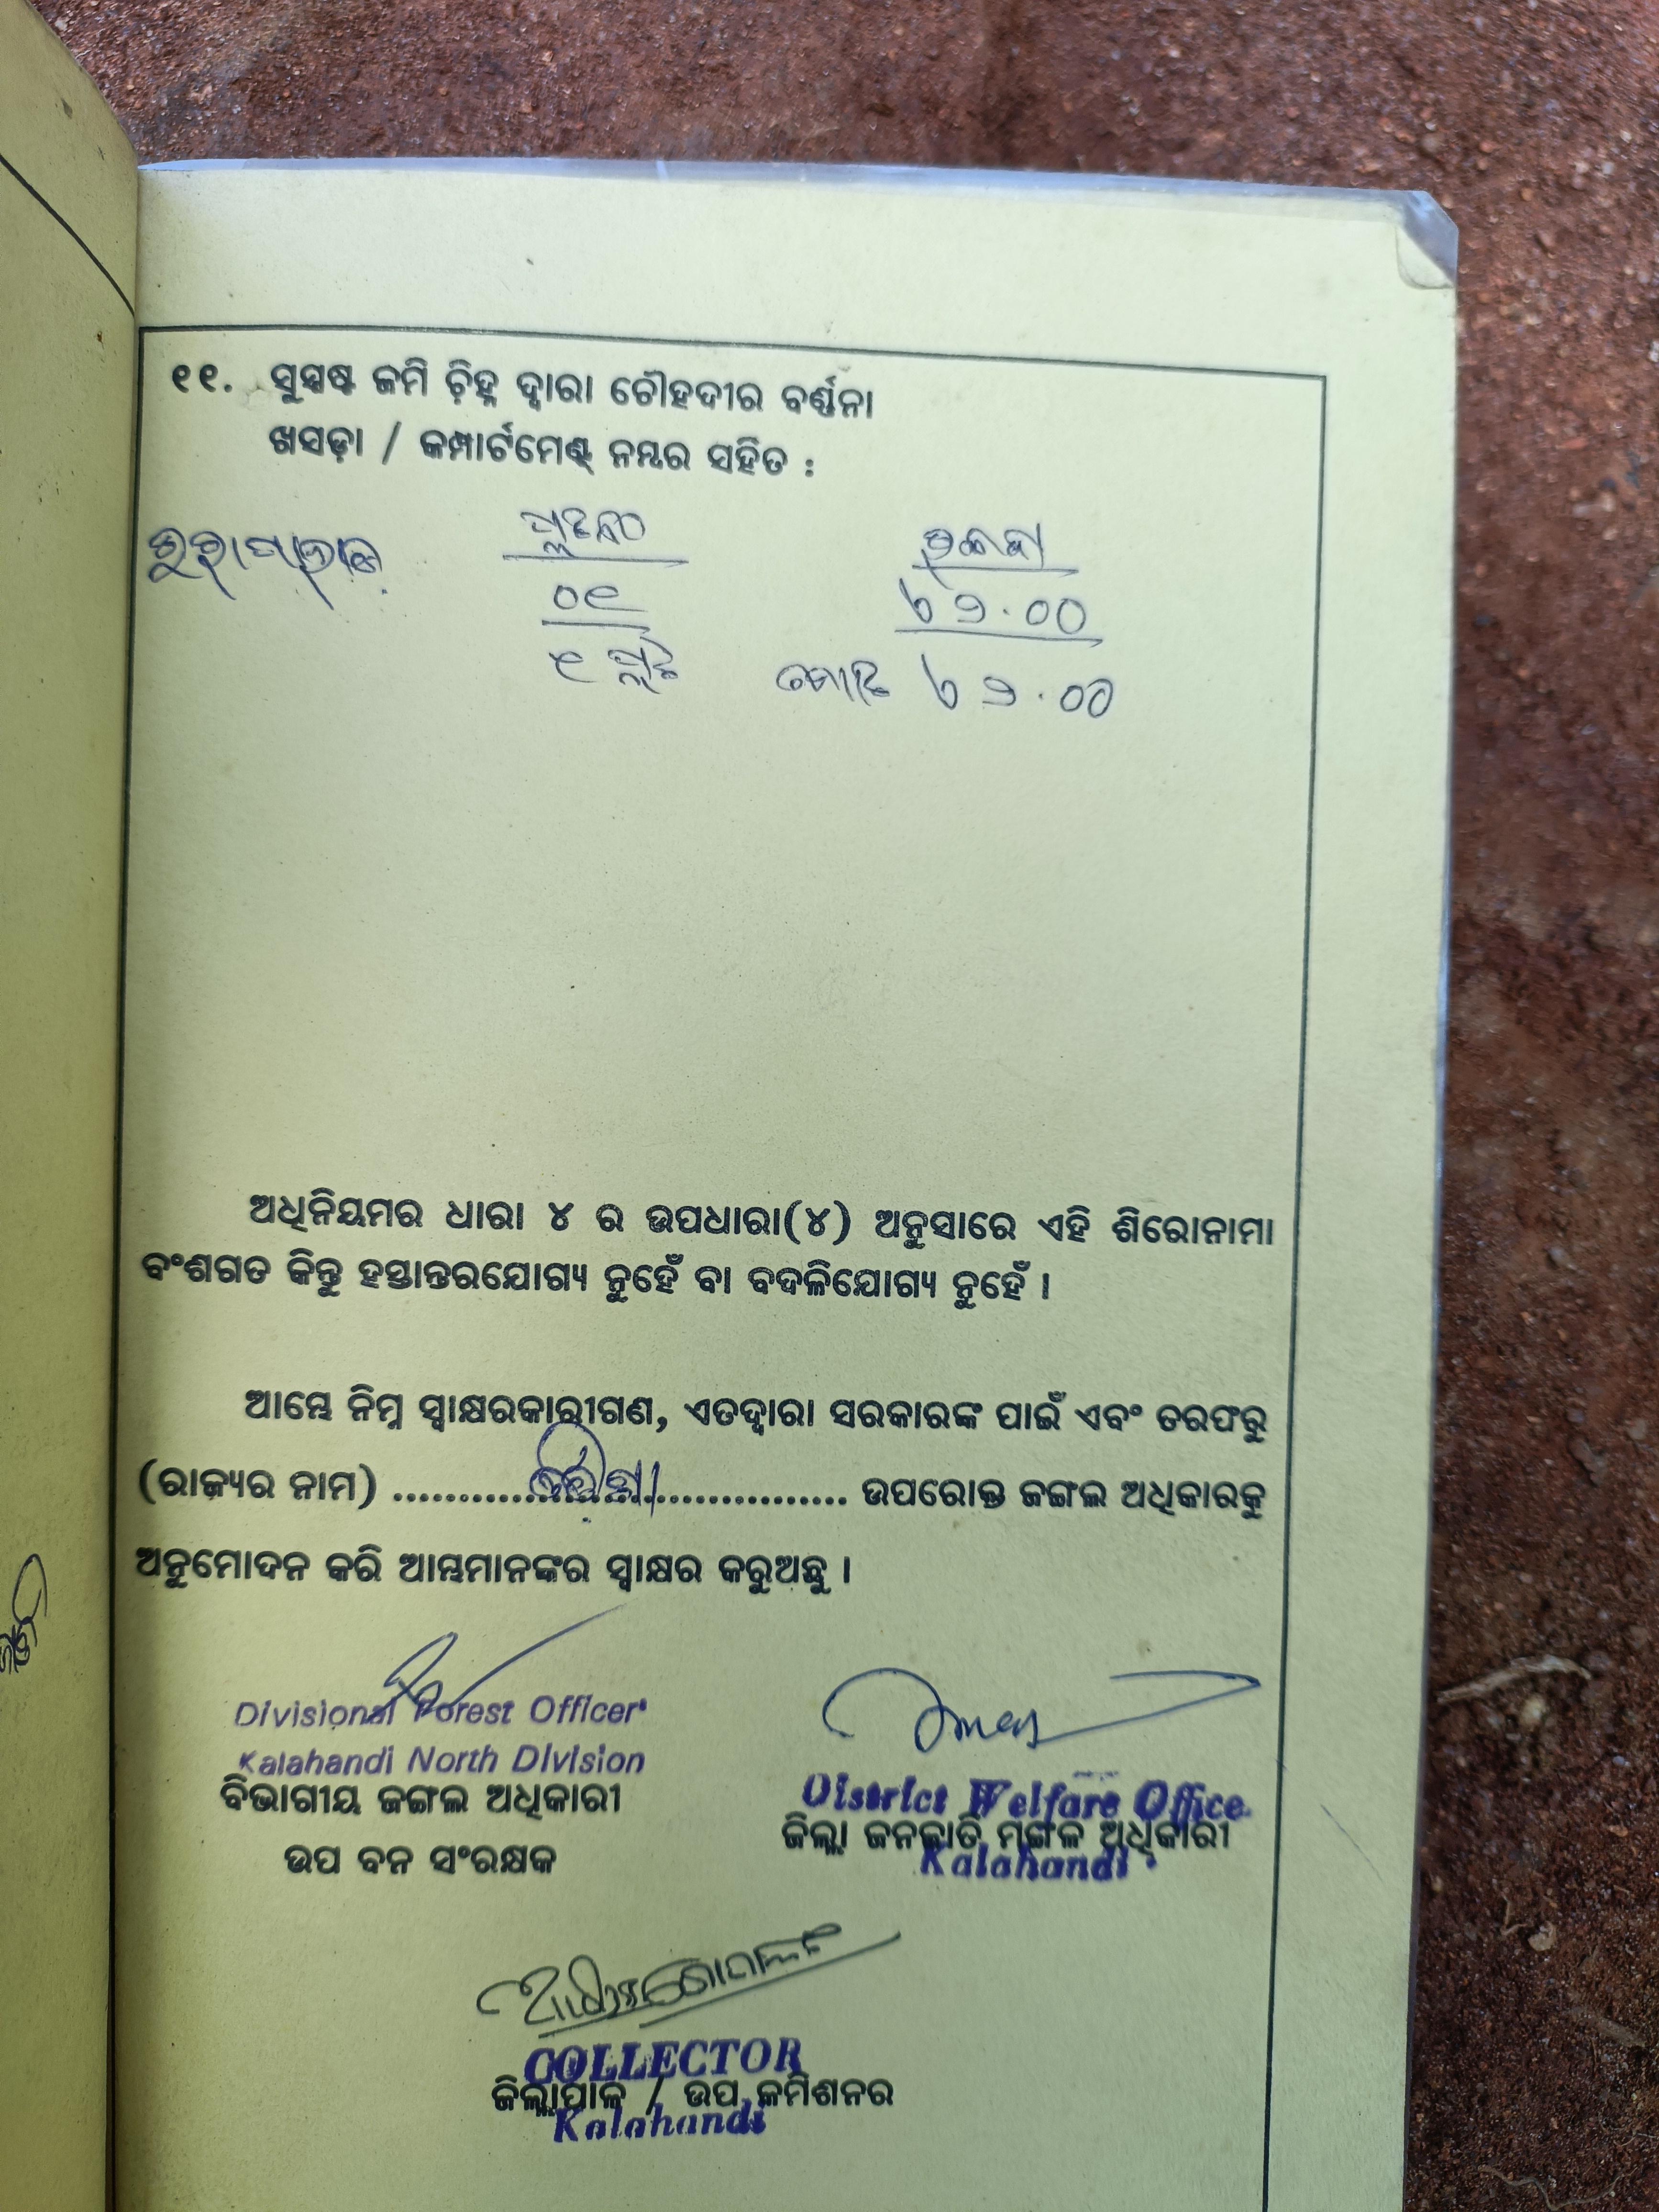 ୧୧. ସୁସ୍ପଷ୍ଟ ଜମି ଚ଼ିହ୍ନ ଦ୍ୱାରା ଚୌହଦୀର ବର୍ଣ୍ଣନା
ଖସଢ଼ା / କମ୍ପାର୍ଟମେଣ୍ଟ୍ ନମ୍ବର ସହିତ :
ପ୍ଲଟନଂ ରକବା
୦୧ ୭୨.୦୦
୧ ପ୍ଲଟ ମୋଟ ୭୨.୦୦
ଅଧିନିୟମର ଧାରା ୪ ର ଉପଧାରା(୪) ଅନୁସାରେ ଏହି ଶିରୋନାମା
ବଂଶଗତ କିନ୍ତୁ ହସ୍ତାନ୍ତରଯୋଗ୍ୟ ନୁହେଁ ବା ବଦଳିଯୋଗ୍ୟ ନୁହେଁ ।
ଆମ୍ଭେ ନିମ୍ନ ସ୍ୱାକ୍ଷରକାରୀଗଣ, ଏତଦ୍ୱାରା ସରକାରଙ୍କ ପାଇଁ ଏବଂ ତରଫରୁ
(ରାଜ୍ୟର ନାମ) ..........ଓଡ଼ିଶା.......... ଉପରୋକ୍ତ ଜଙ୍ଗଲ ଅଧିକାରକୁ
ଅନୁମୋଦନ କରି ଆମ୍ଭମାନଙ୍କର ସ୍ୱାକ୍ଷର କରୁଅଛୁ ।
Divisional Forest Officer
Kalahandi North Division
ବିଭାଗୀୟ ଜଙ୍ଗଲ ଅଧିକାରୀ
ଉପ ବନ ସଂରକ୍ଷକ
District Welfare Office
ଜିଲ୍ଲା ଜନଜାତି ମଙ୍ଗଳ ଅଧିକାରୀ
Kalahandi
COLLECTOR
ଜିଲ୍ଲାପାଳ / ଉପ କମିଶନର
Kalahandi